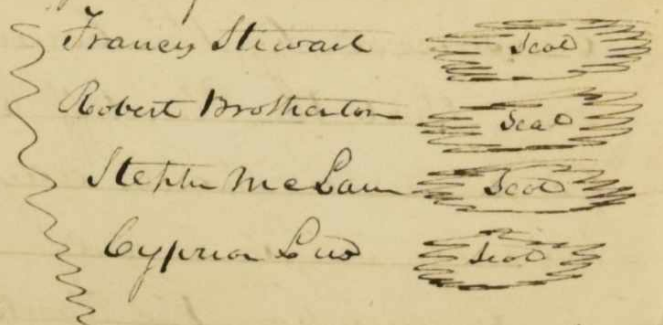 Francis Stewart Seal
Robert Brotherton Seal
Stephen McLain Seal
Cyprian Seal